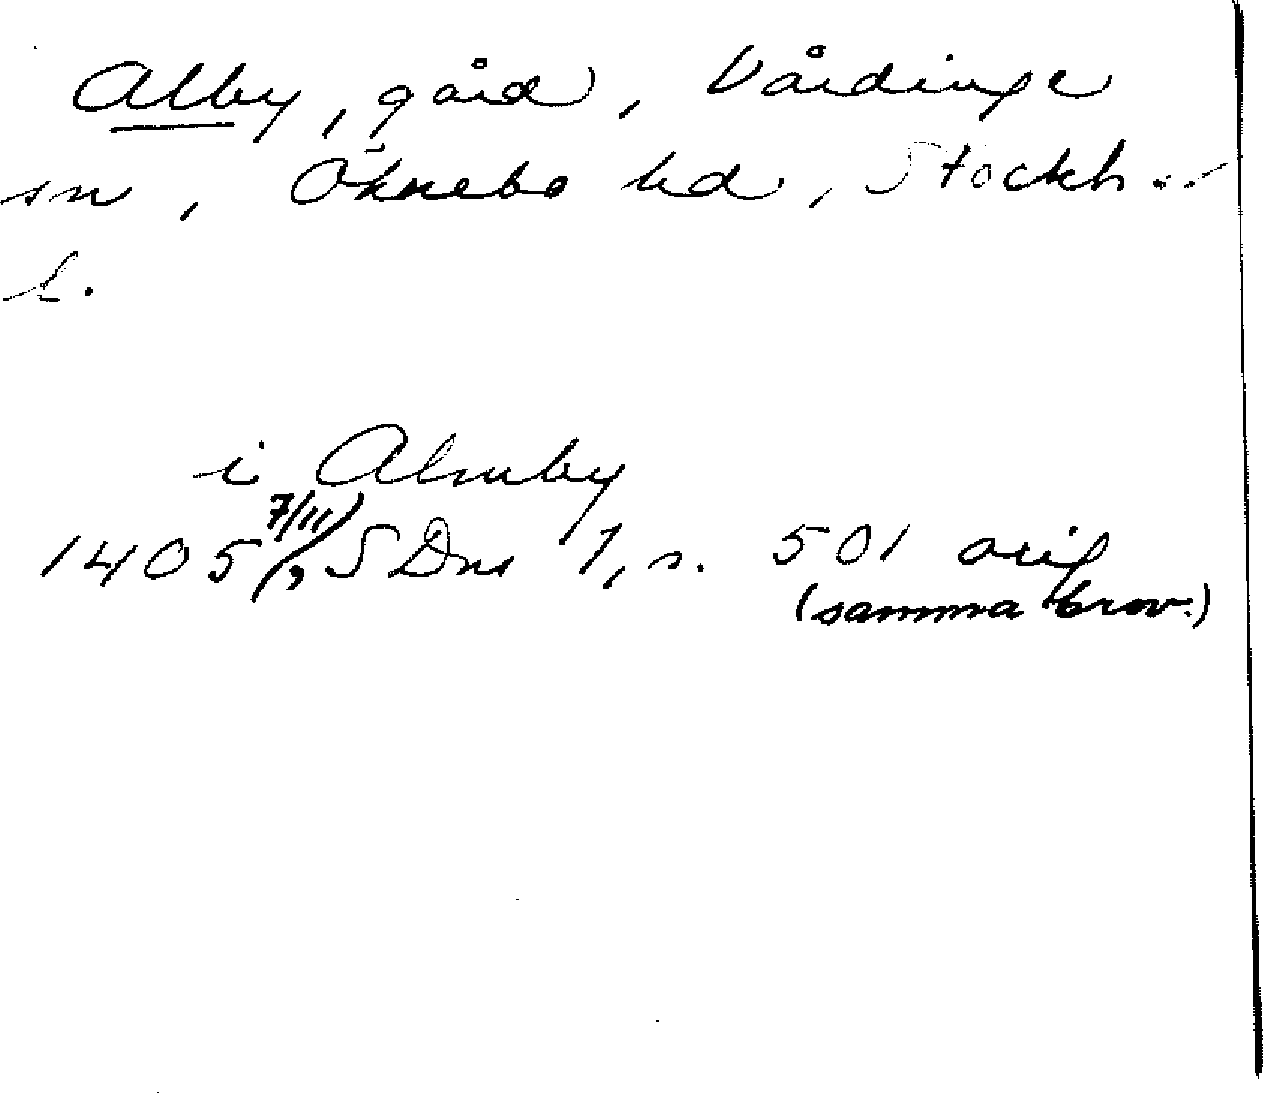 Alby, gård, Vårdinge
sn, Öknebo hd, Stockh..
l.
i Almby
1405 7/11), SDns 1, s. 501 orig
(samma brev.)